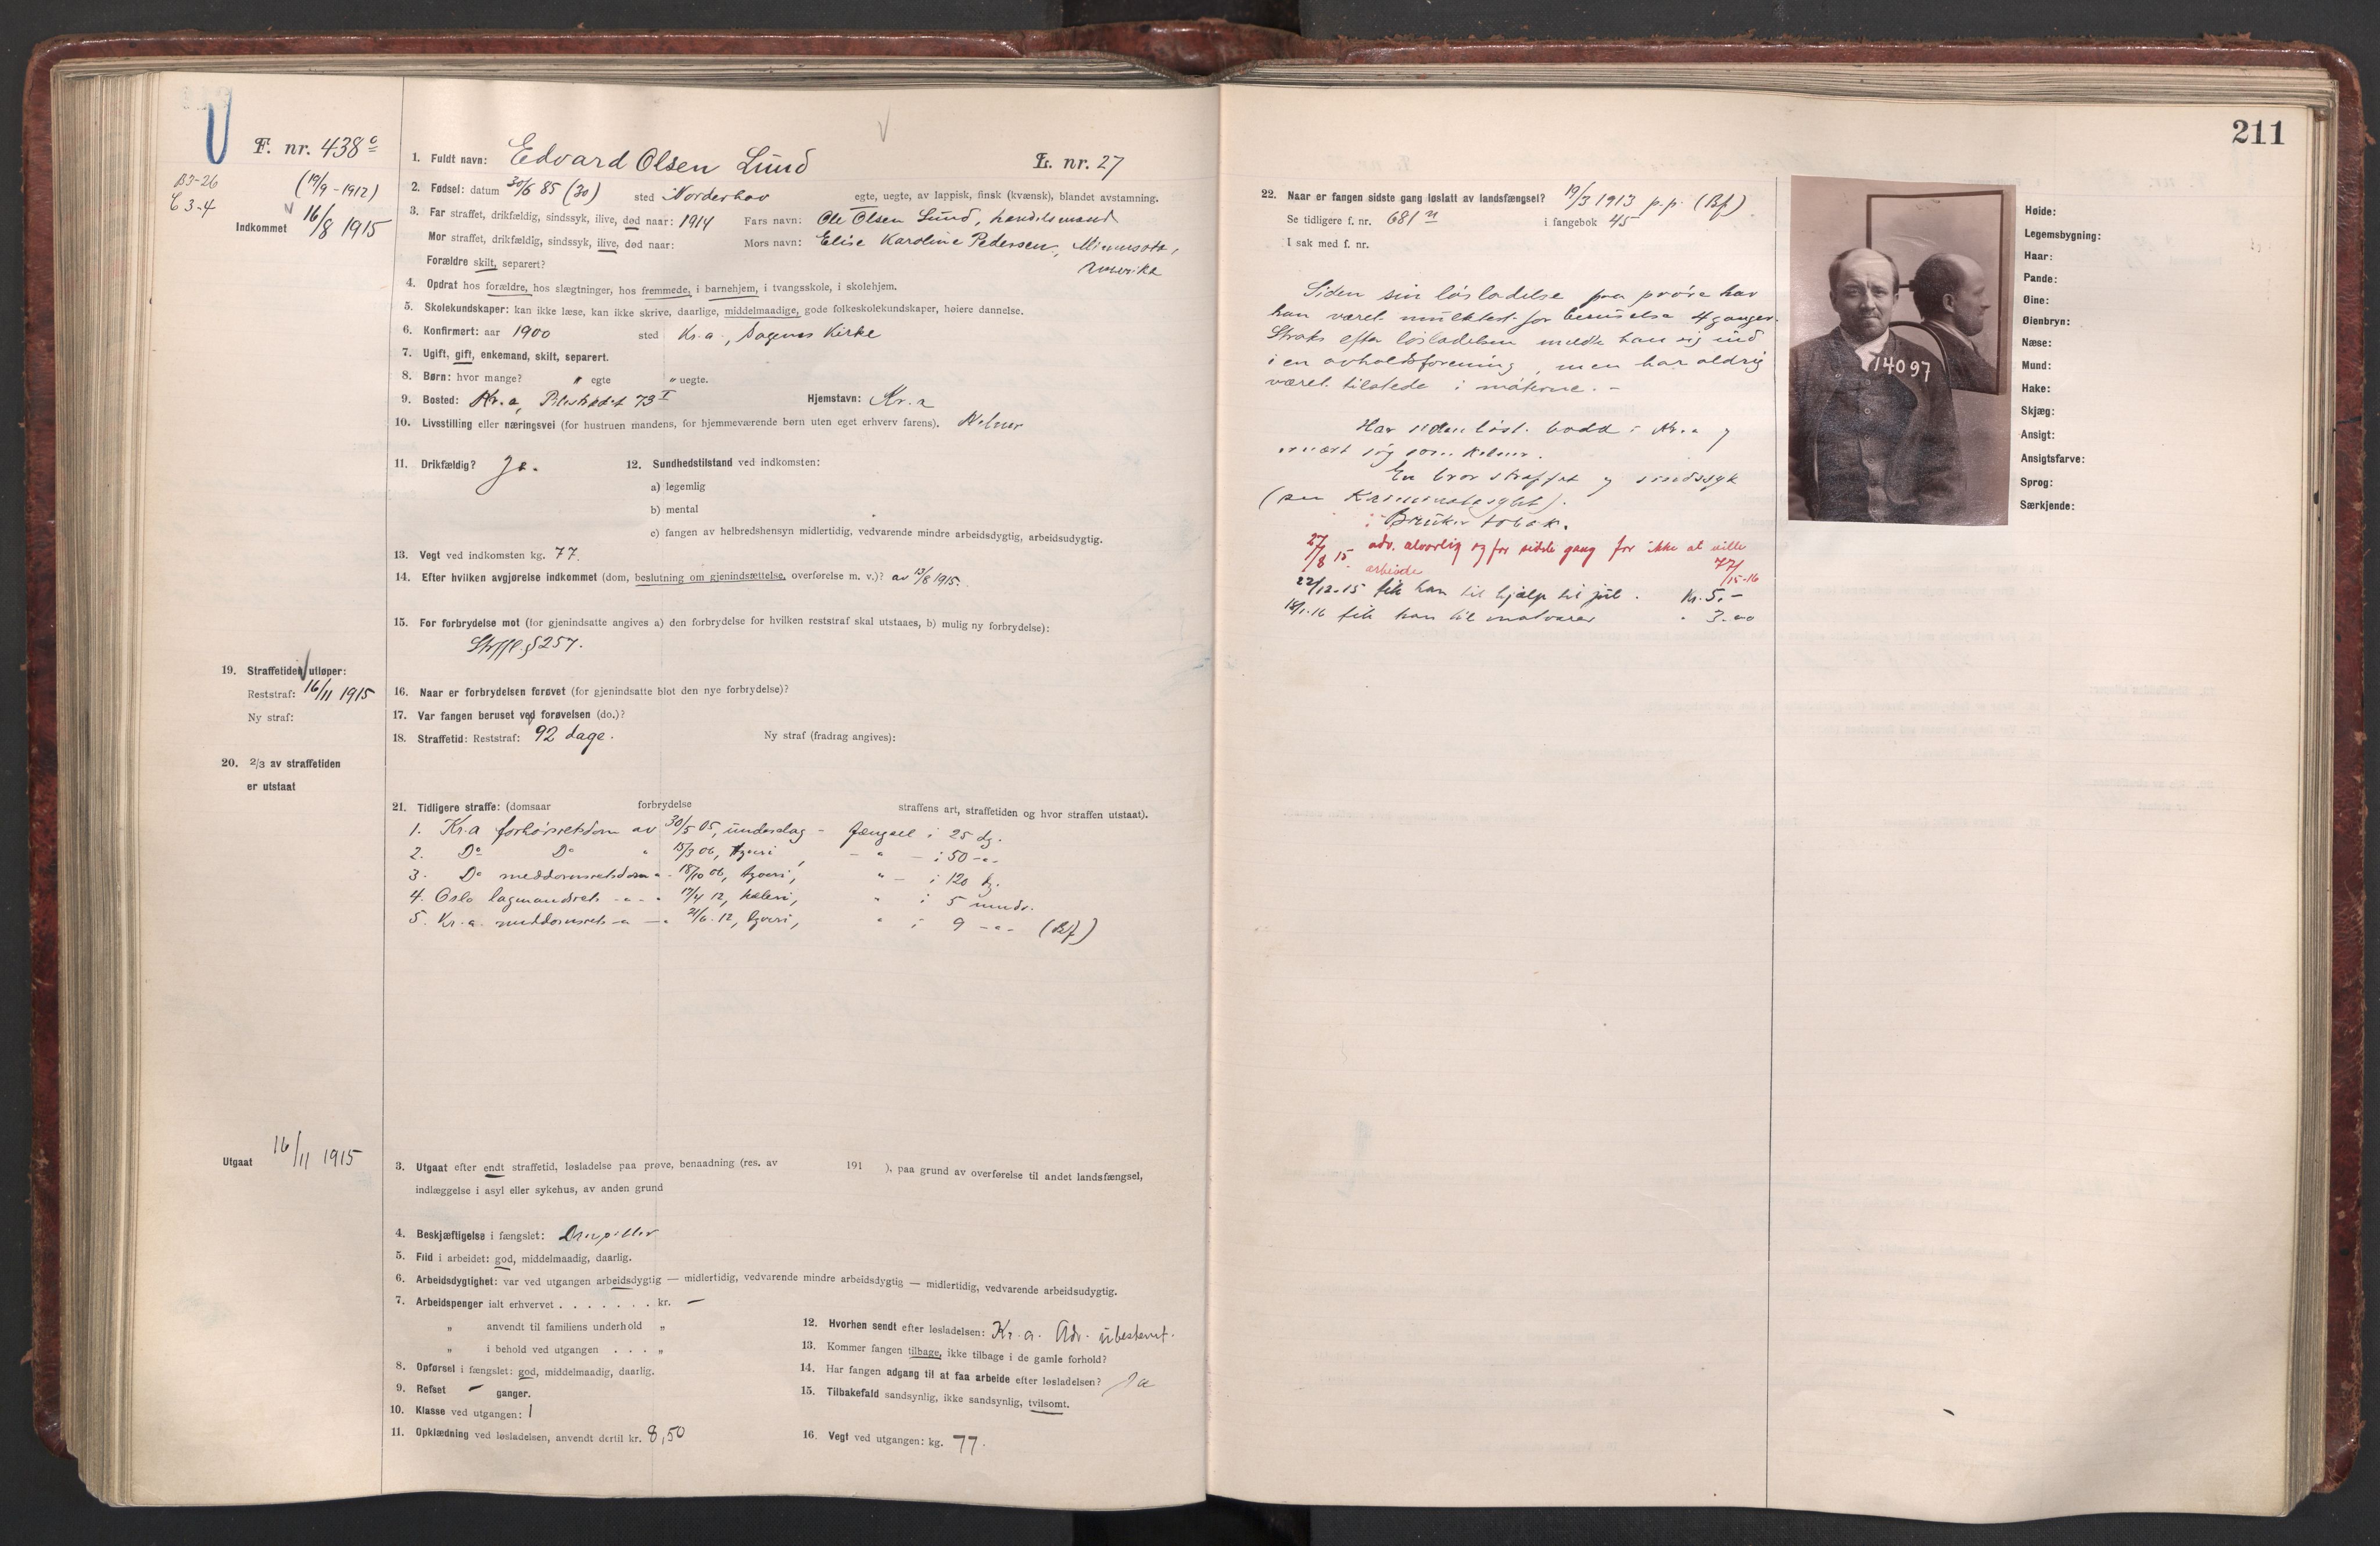 211
F. nr. 438 c
B3-26
C 3-4
(19/9 - 1912)
Indkommet 16/8 1915
1. Fuldt navn: Edvard Olsen Lund
L. nr. 27
2. Fødsel: datum 30/6 85 (30) sted Norderhov egte, uegte, av lappisk, finsk (kvænsk), blandet avstamning.
3. Far straffet, drikfældig, sindssyk, ilive, død naar: 1914 Fars navn: Ole Olsen Lund, handelsmand
Mor straffet, drikfældig, sindssyk, ilive, død naar: Mors navn: Elise Karoline Pedersen, Minnesota,
Amerika
Forældre skilt, separert?
4. Opdrat hos forældre, hos slægtninger, hos fremmede, i barnehjem, i tvangsskole, i skolehjem.
5. Skolekundskaper: kan ikke læse, kan ikke skrive, daarlige, middelmaadige, gode folkeskolekundskaper, høiere dannelse.
6. Konfirmert: aar 1900 sted Kr.a, Sagenes Kirke
7. Ugift, gift, enkemand, skilt, separert.
8. Børn: hvor mange? " egte " uegte.
9. Bosted: Kr.a, Pilestrædet 73 I Hjemstavn: Kr.a
10. Livsstilling eller næringsvei (for hustruen mandens, for hjemmeværende børn uten eget erhverv farens). Kelner
11. Drikfældig? Ja. 12. Sundhedstilstand ved indkomsten:
a) legemlig
b) mental
c) fangen av helbredshensyn midlertidig, vedvarende mindre arbeidsdygtig, arbeidsudygtig.
13. Vegt ved indkomsten kg. 77.
14. Efter hvilken avgjørelse indkommet (dom, beslutning om gjenindsættelse, overførelse m. v.)? av 13/8 1915.
15. For forbrydelse mot (for gjenindsatte angives a) den forbrydelse for hvilken reststraf skal utstaaes, b) mulig ny forbrydelse):
Strffl. § 257.
19. Straffetiden utløper:
Reststraf: 16/11 1915
Ny straf:
16. Naar er forbrydelsen forøvet (for gjenindsatte blot den nye forbrydelse)?
17. Var fangen beruset ved forøvelsen (do.)?
18. Straffetid: Reststraf: 92 dage. Ny straf (fradrag angives):
20. 2/3 av straffetiden
er utstaat
21. Tidligere straffe: (domsaar forbrydelse straffens art, straffetiden og hvor straffen utstaat).
1. Kr.a forhørsretsdom av 30/5 05, underslag - fængsel i 25 dg.
2. Do Do " 15/3 06, tyveri, - " - i 50 - " -
3. Do meddomsretsdom " - 18/10 06, tyveri, " - i 120 dg.
4. Oslo lagmandsrets - " - " 17/4 12, hæleri, " i 5 mndr.
5. Kr.a. meddomsrets - " - " 21/6 12, tyveri, " i 9 - " - (Bf)
Utgaat 16/11 1915
3. Utgaat efter endt straffetid, løsladelse paa prøve, benaadning (res. av 191 ), paa grund av overførelse til andet landsfængsel,
indlæggelse i asyl eller sykehus, av anden grund
4. Beskjæftigelse i fængslet: Drevpiller
5. Flid i arbeidet: god, middelmaadig, daarlig.
6. Arbeidsdygtighet: var ved utgangen arbeidsdygtig — midlertidig, vedvarende mindre arbeidsdygtig — midlertidig, vedvarende arbeidsudygtig.
7. Arbeidspenger ialt erhvervet . . . . . . . kr. -
" anvendt til familiens underhold "
" i behold ved utgangen . . . "
8. Opførsel i fængslet: god, middelmaadig, daarlig.
9. Refset - ganger.
10. Klasse ved utgangen: 1
11. Opklædning ved løsladelsen, anvendt dertil kr. 8,50
12. Hvorhen sendt efter løsladelsen: Kr.a. Adr. ubestemt.
13. Kommer fangen tilbage, ikke tilbage i de gamle forhold?
14. Har fangen adgang til at faa arbeide efter løsladelsen? Ja
15. Tilbakefald sandsynlig, ikke sandsynlig, tvilsomt.
16. Vegt ved utgangen: kg. 77.
22. Naar er fangen sidste gang løslatt av landsfængsel? 19/3 1913 p.p. (Bf)
Se tidligere f. nr. 681 n i fangebok 45
I sak med f. nr.
Siden sin løsladelse paa prøve har
han været mulktert for beruselse 4 ganger.
Straks efter løsladelsen meldte han sig ind
i en avholdsforening, men har aldrig
været tilstede i møterne. -
Har siden løsl. bodd i Kr.a og
ernært sig som kelner.
En bror straffet og sindssyk
(paa Kriminalasylet).
Bruker tobak.
27/8 15. adv. alvorlig og for sidste gang for ikke at ville
arbeide 77/15-16
22/12-15 fik han til hjælp til jul. Kr. 5. -
18/1-16 fik han til matvarer " 3.00
14097
Høide:
Legemsbygning:
Haar:
Pande:
Øine:
Øienbryn:
Næse:
Mund:
Hake:
Skjæg:
Ansigt:
Ansigtsfarve:
Sprog:
Særkjende: